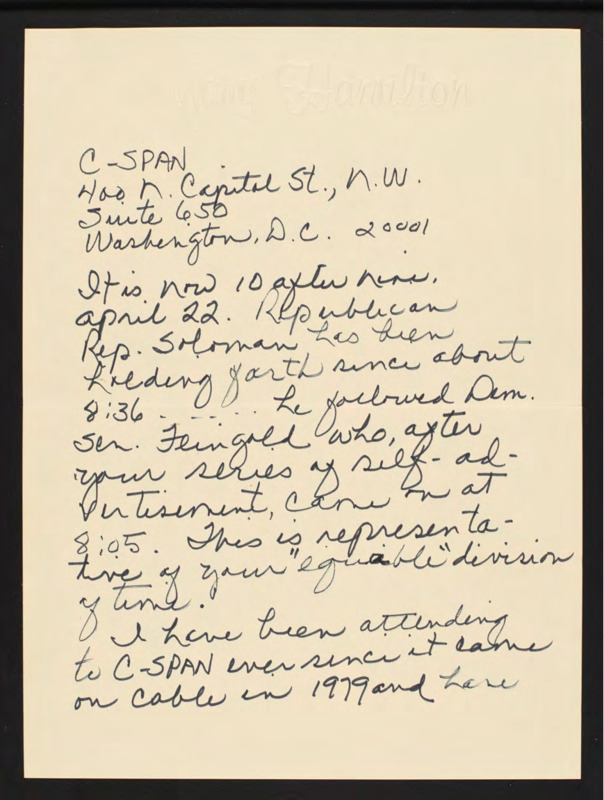 Mary Hamilton
C-SPAN
400 N. Capital St., N.W.
Suite 650
Washington, D.C. 20001
It is now 10 after nine,
april 22. Republican
Rep. Soloman has been
holding forth since about
8:36 - - - - - . he followed Dem.
Sen. Feingold who, after
your series of self-ad-
vertisement, came on at
8:05. This is representa-
tive of your "equable" division
of time.
I have been attending
to C-SPAN ever since it came
on cable in 1979 and have